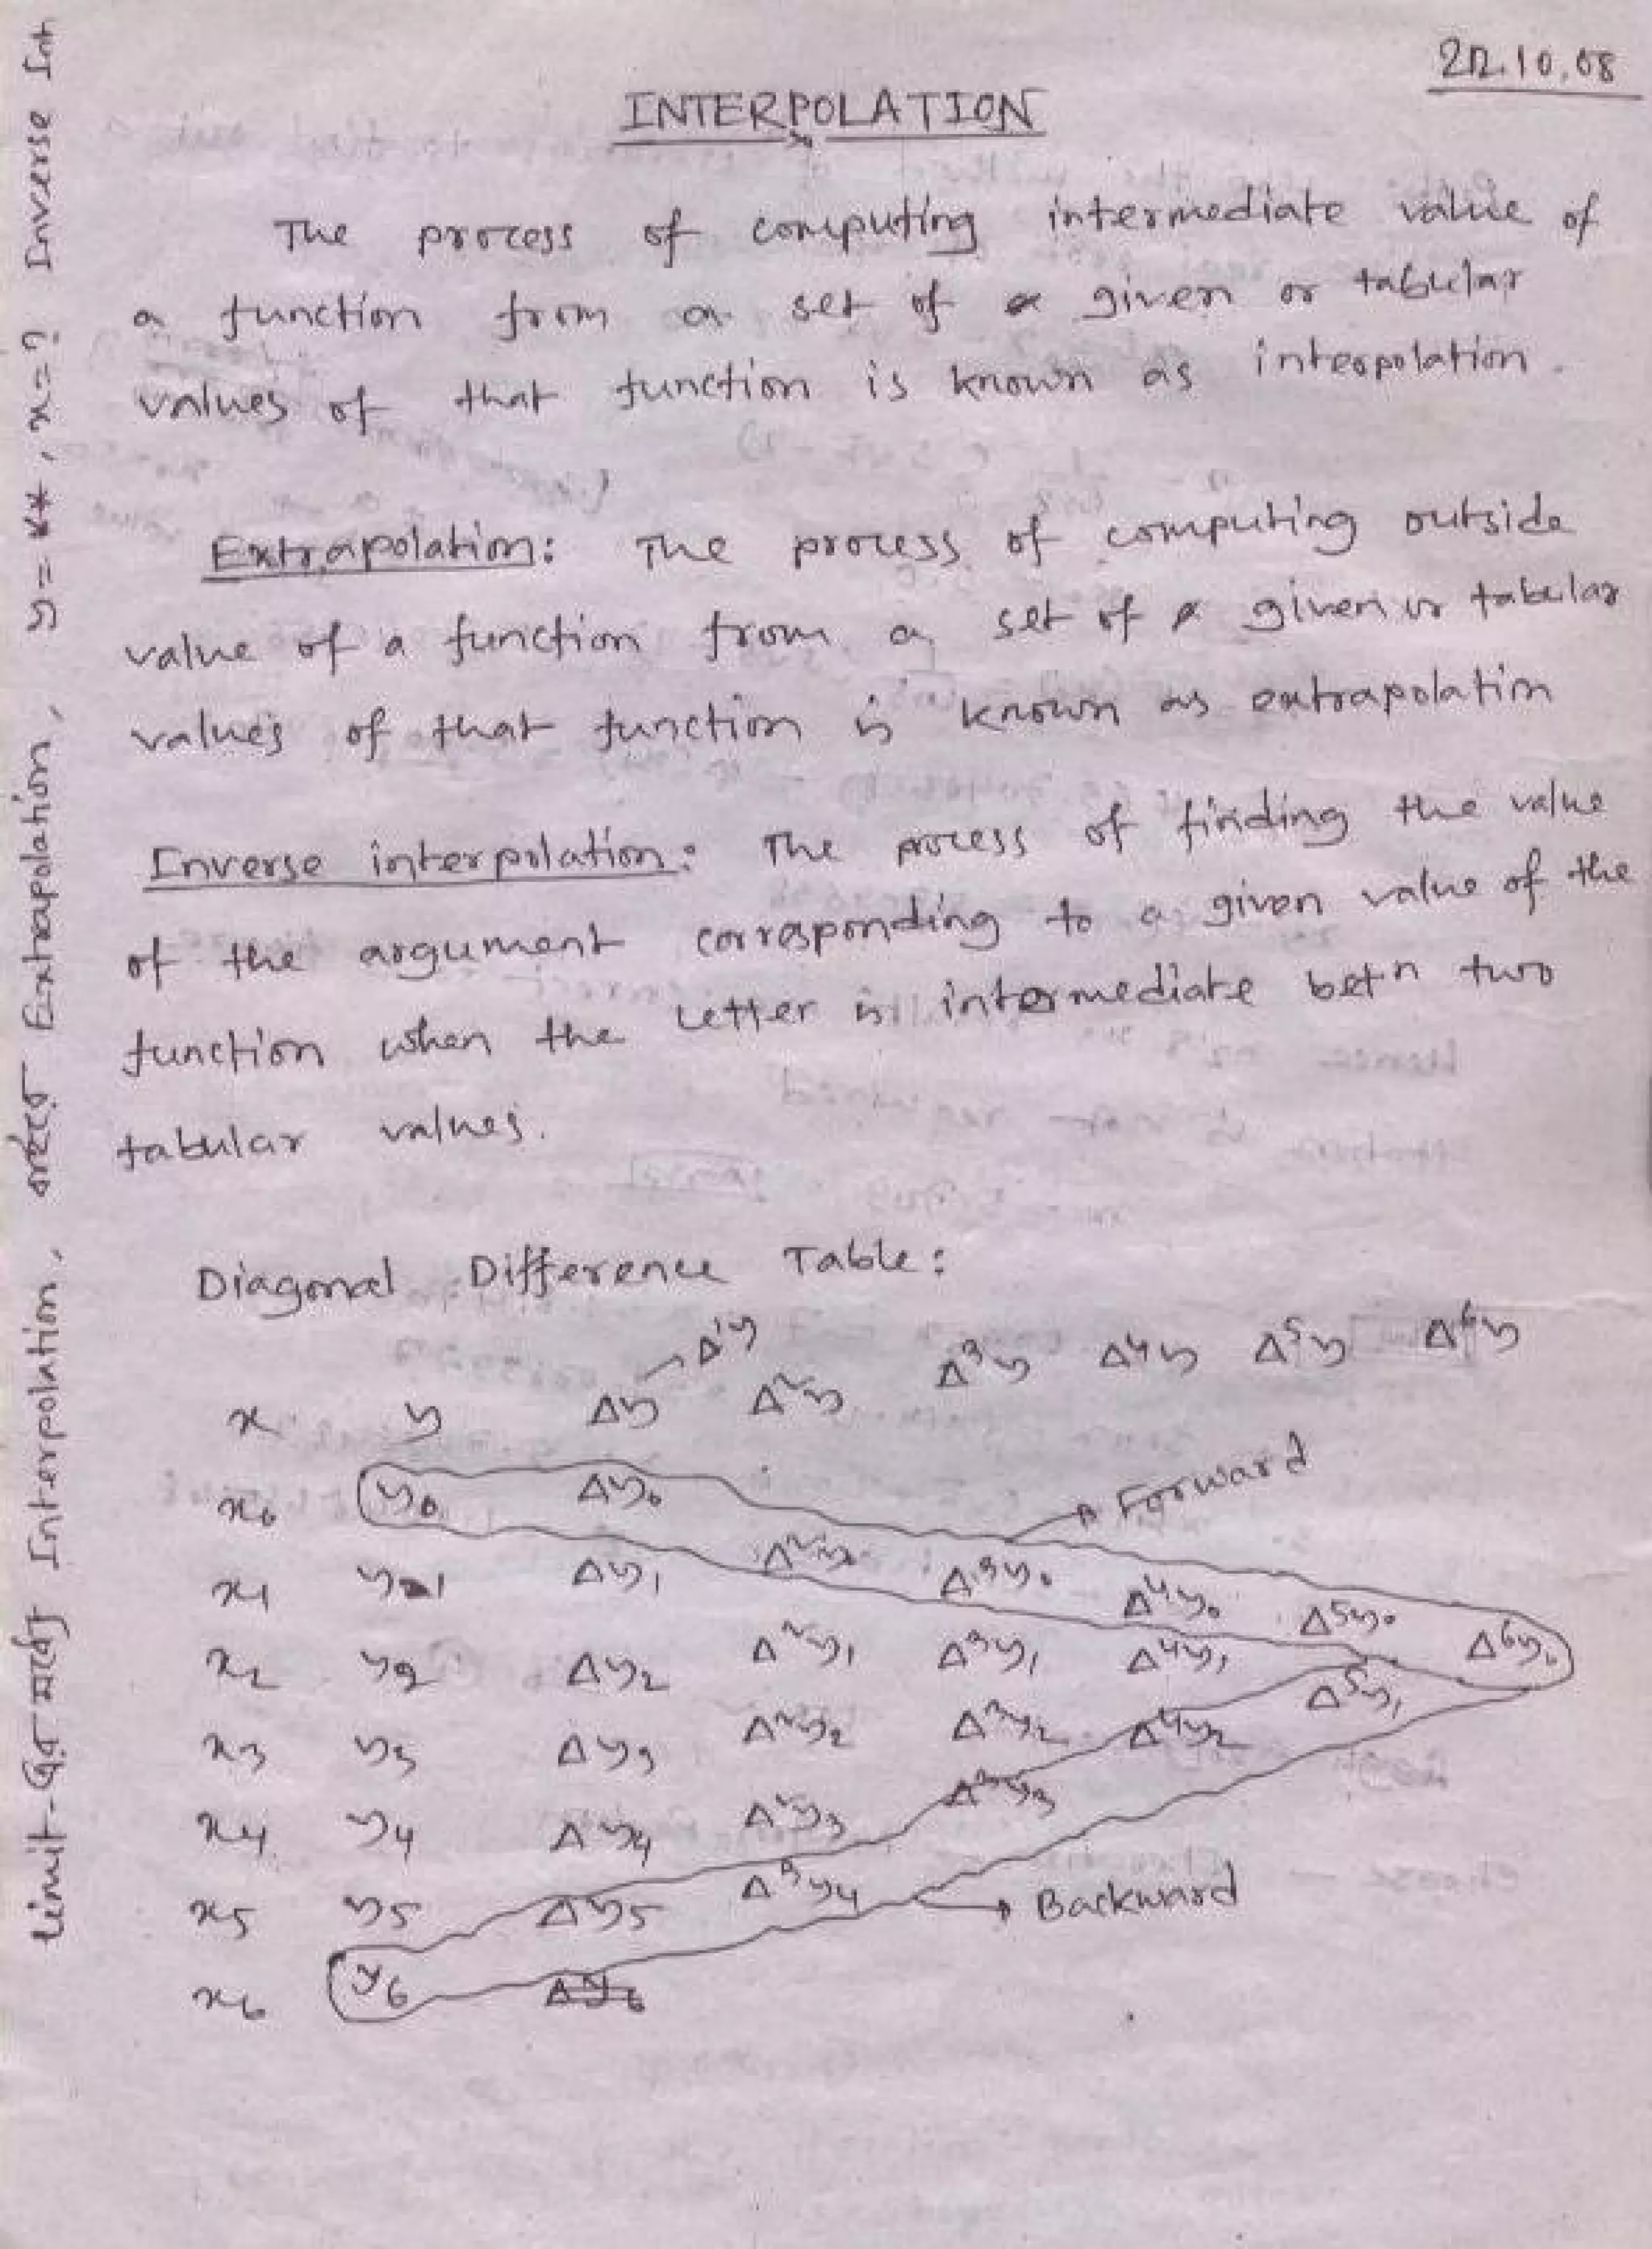 INTERPOLATION
The process of computing intermediate value of
a function from a set of a given or tabular
values of that function is known as interpolation.
Extrapolation: The process of computing outside
value of a function from a set of a given or tabular
values of that function is known as extrapolation
Inverse interpolation: The process of finding the value
of the argument corresponding to a given value of the
function when the letter is intermediate betn two
tabular values.
Diagonal Difference Table:
x y Δy → Δ¹y Δ²y Δ³y Δ⁴y Δ⁵y Δ⁶y
x₀ y₀ Δy₀ → Forward
x₁ y₁ Δy₁ Δ²y₀ Δ³y₀ Δ⁴y₀ Δ⁵y₀ Δ⁶y₀
x₂ y₂ Δy₂ Δ²y₁ Δ³y₁ Δ⁴y₁ Δ⁵y₁
x₃ y₃ Δy₃ Δ²y₂ Δ³y₂ Δ⁴y₂
x₄ y₄ Δy₄ Δ²y₃ Δ³y₃
x₅ y₅ Δy₅ Δ²y₄ → Backward
x₆ y₆ Δy₆
limit-এর মধ্যে Interpolation, বাইরে Extrapolation, y = **, x = ? Inverse Int